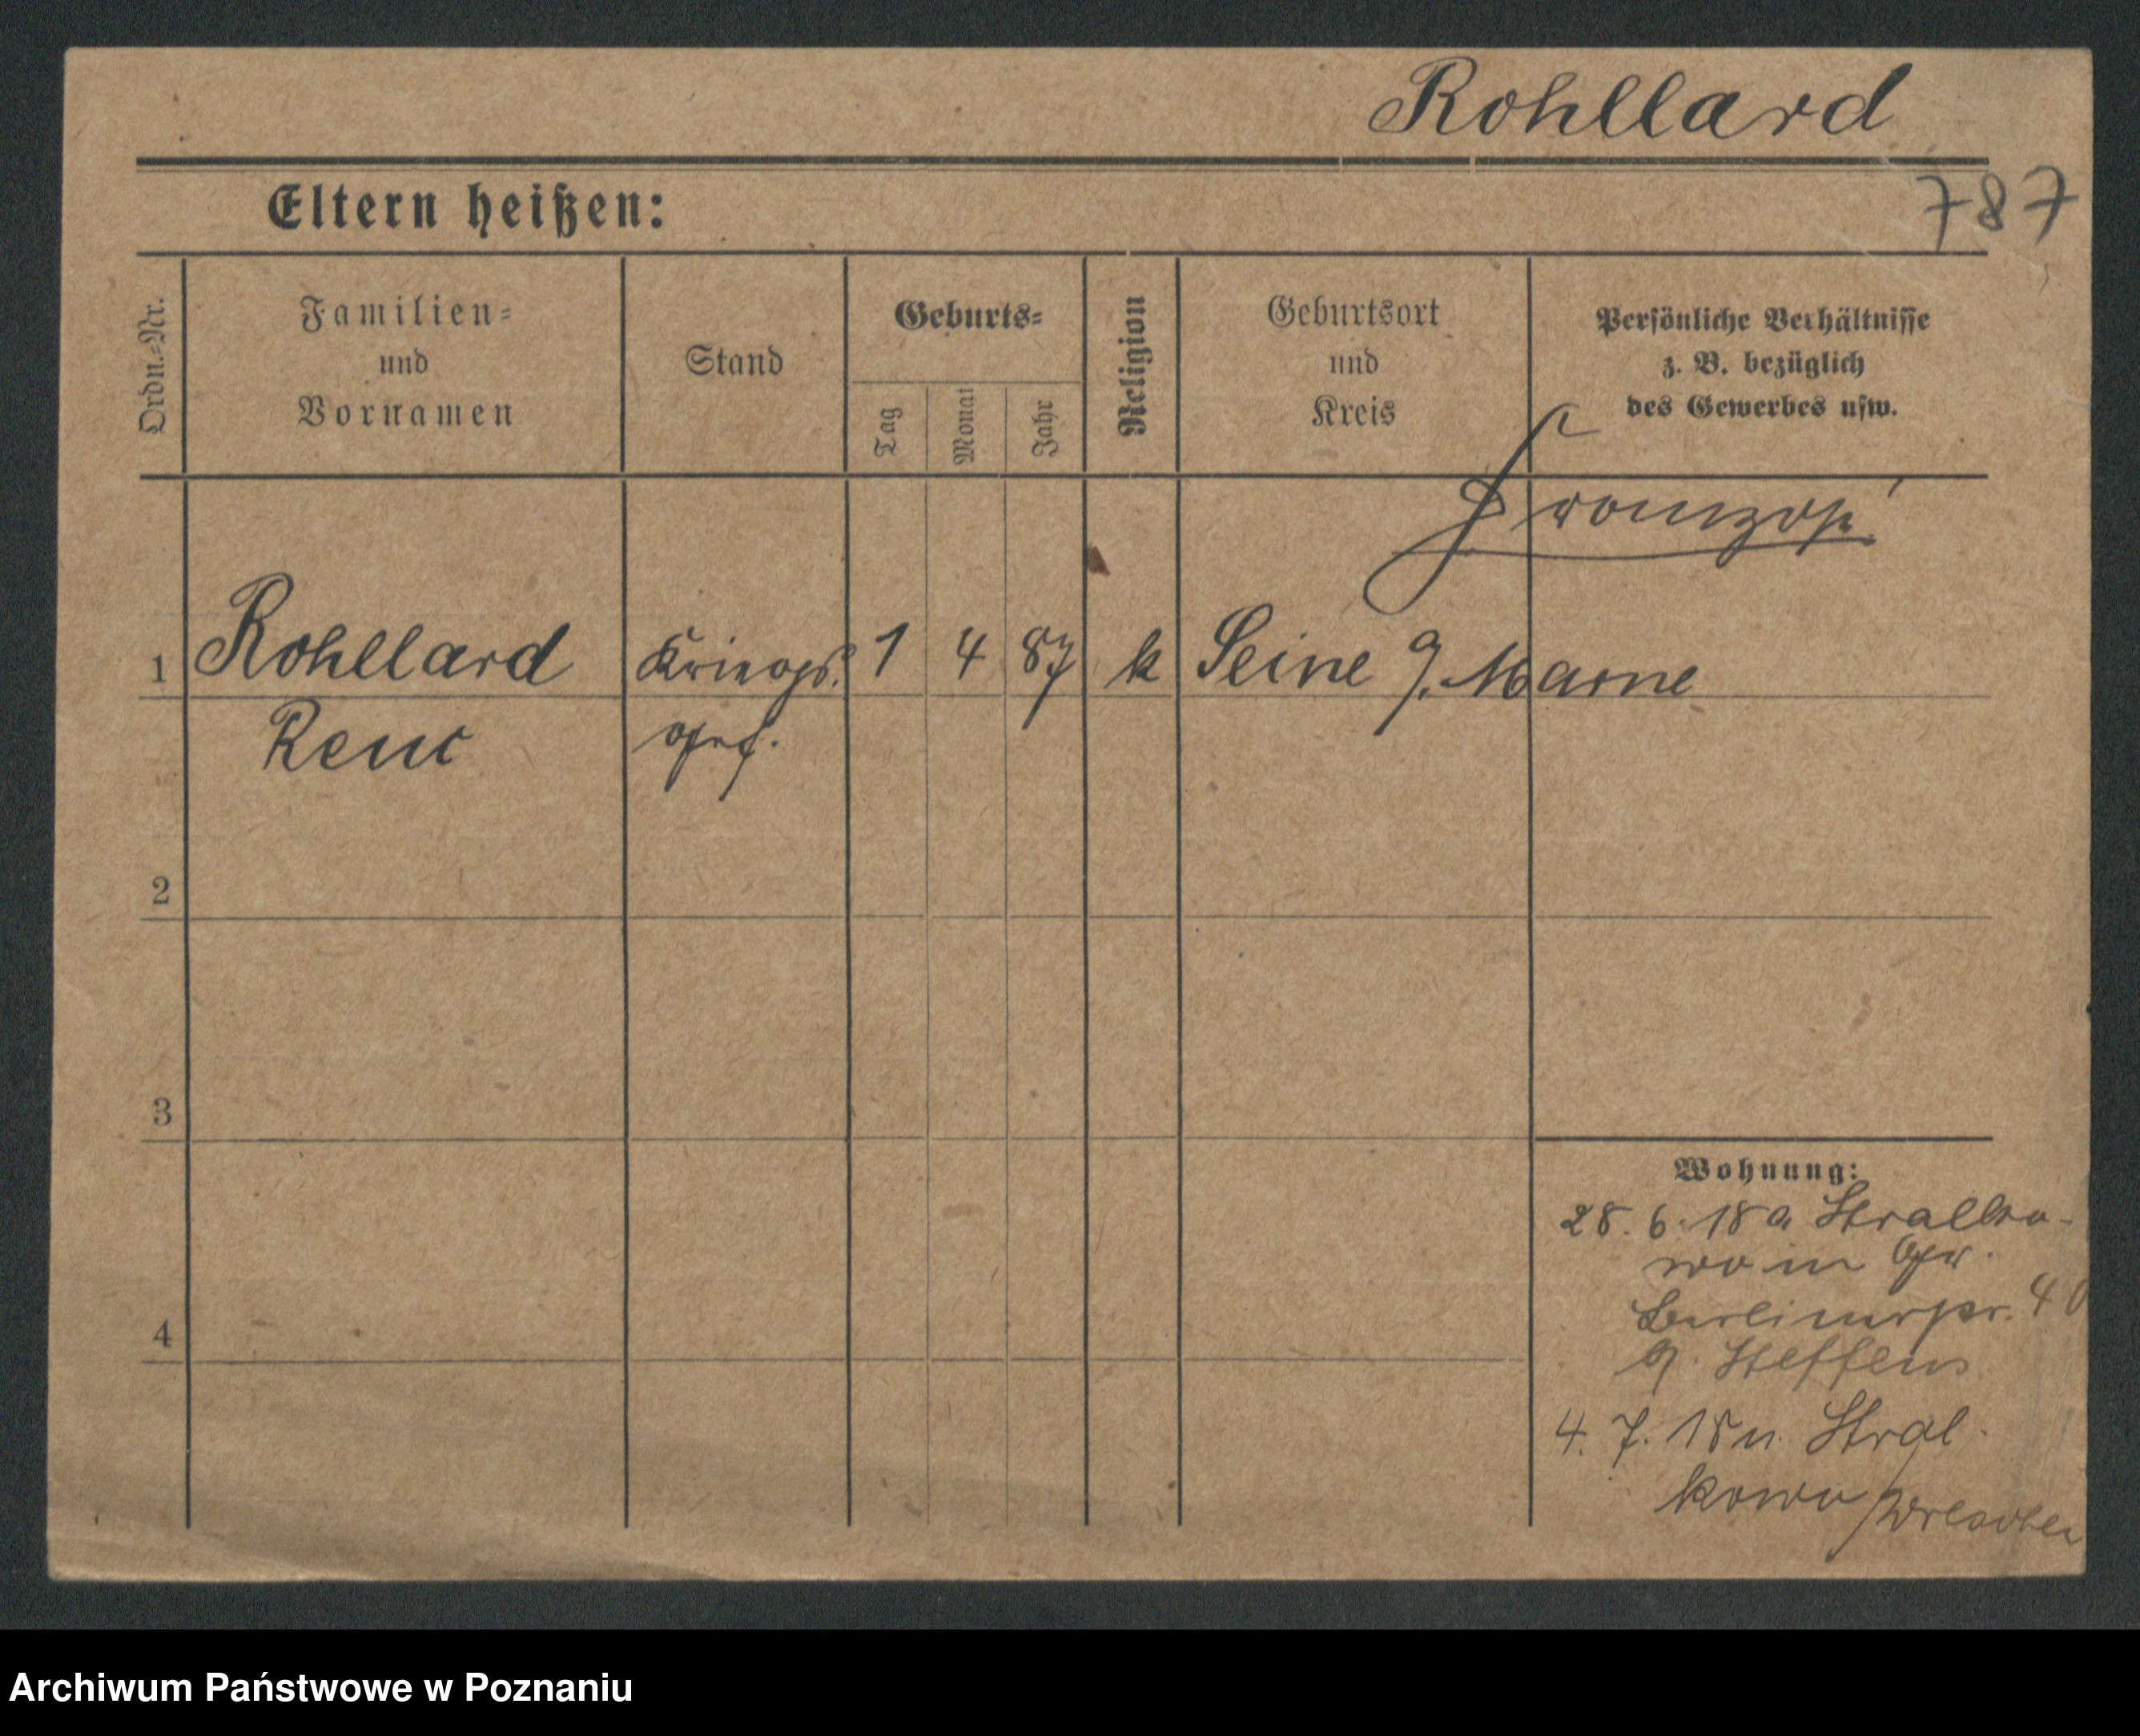 Rohllard
787
Eltern heißen:
Ordn.=Nr.
Familien=
und
Vornamen
Stand
Geburts=
Tag
Monat
Jahr
Religion
Geburtsort
und
Kreis
Persönliche Verhältnisse
z. B. bezüglich
des Gewerbes usw.
Französ.
1 Rohllard Kriegs 1 4 87 k Seine Marne
Rene gef.
2
3
4
Wohnung:
28. 6. 18 a Strallko-
wo in
Berlinerstr. 40
Steffens
4. 7. 18 n. Stral-
kowo / Wreschen
Archiwum Państwowe w Poznaniu